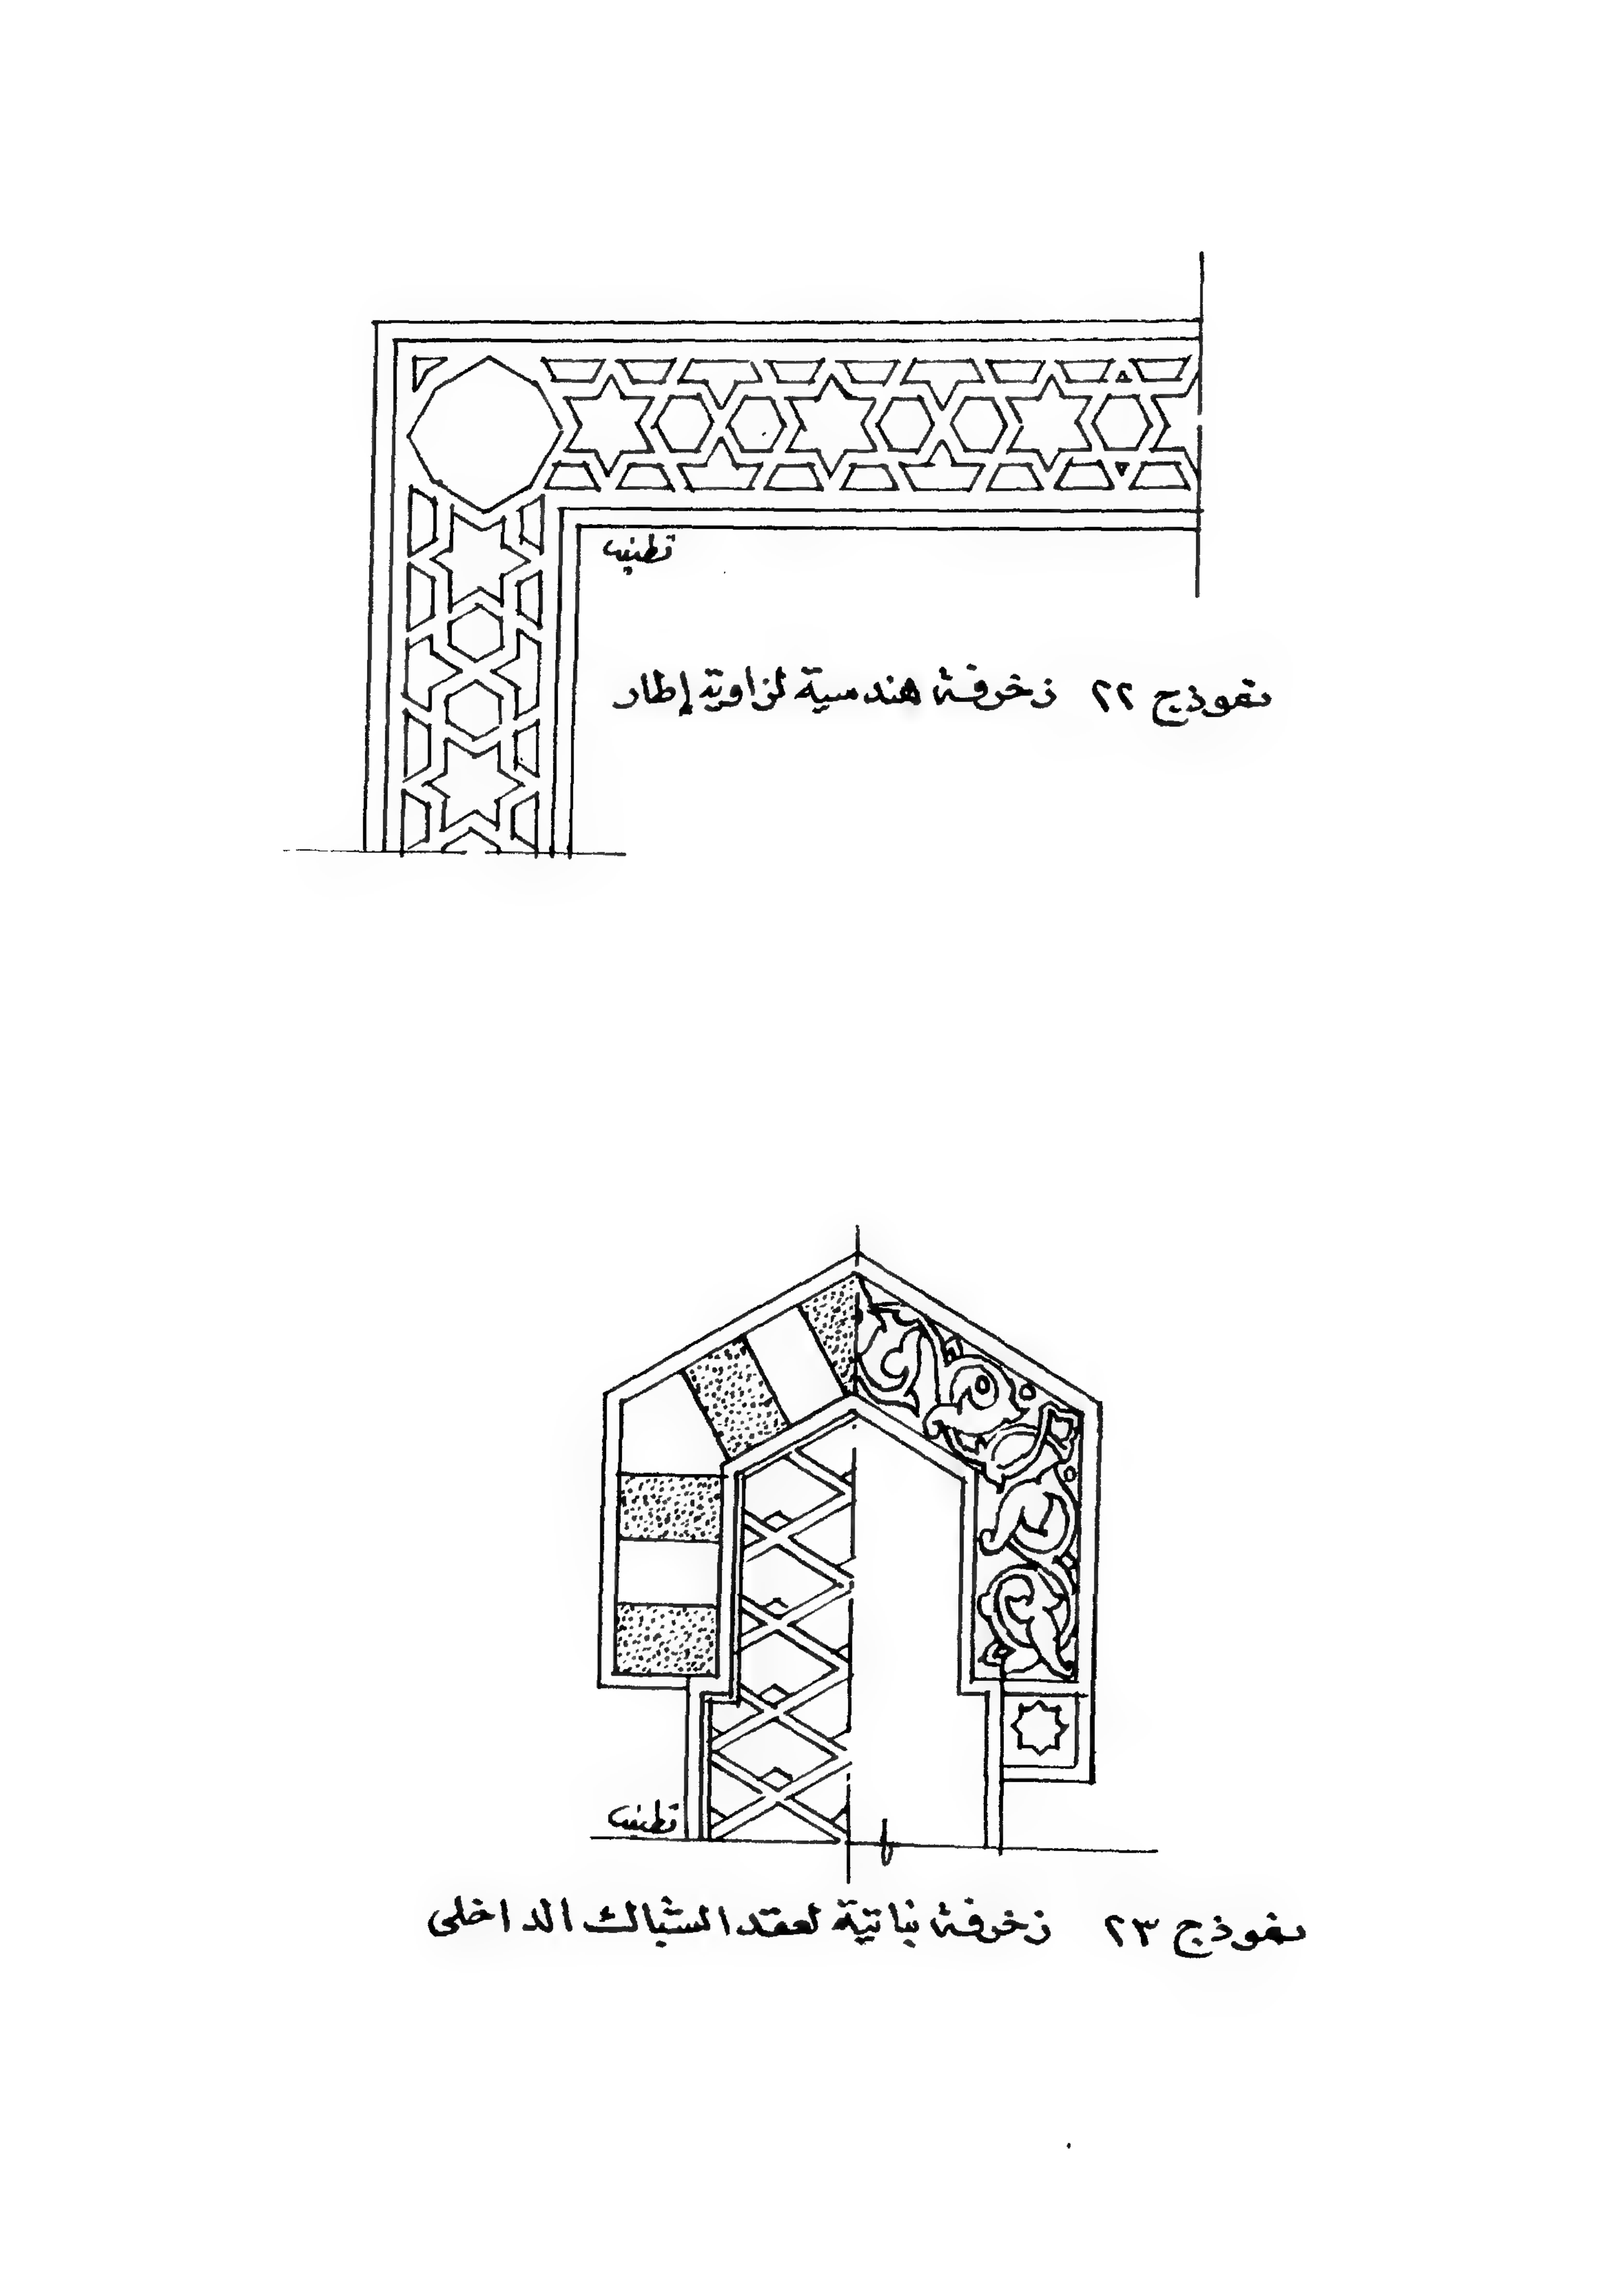 نموذج ٢٢ زخرفة هندسية لزاوية إطار
نموذج ٢٣ زخرفة نباتية لعقد الشباك الداخلى